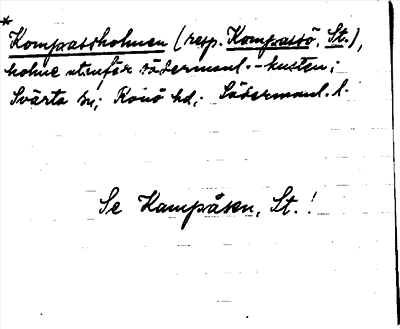 * Kompassholmen (resp. Kompassö, St.),
holme utanför södermanl.-kusten;
Svärta sn; Rönö hd; Södermanl. l.
Se Kampåsen, St.!